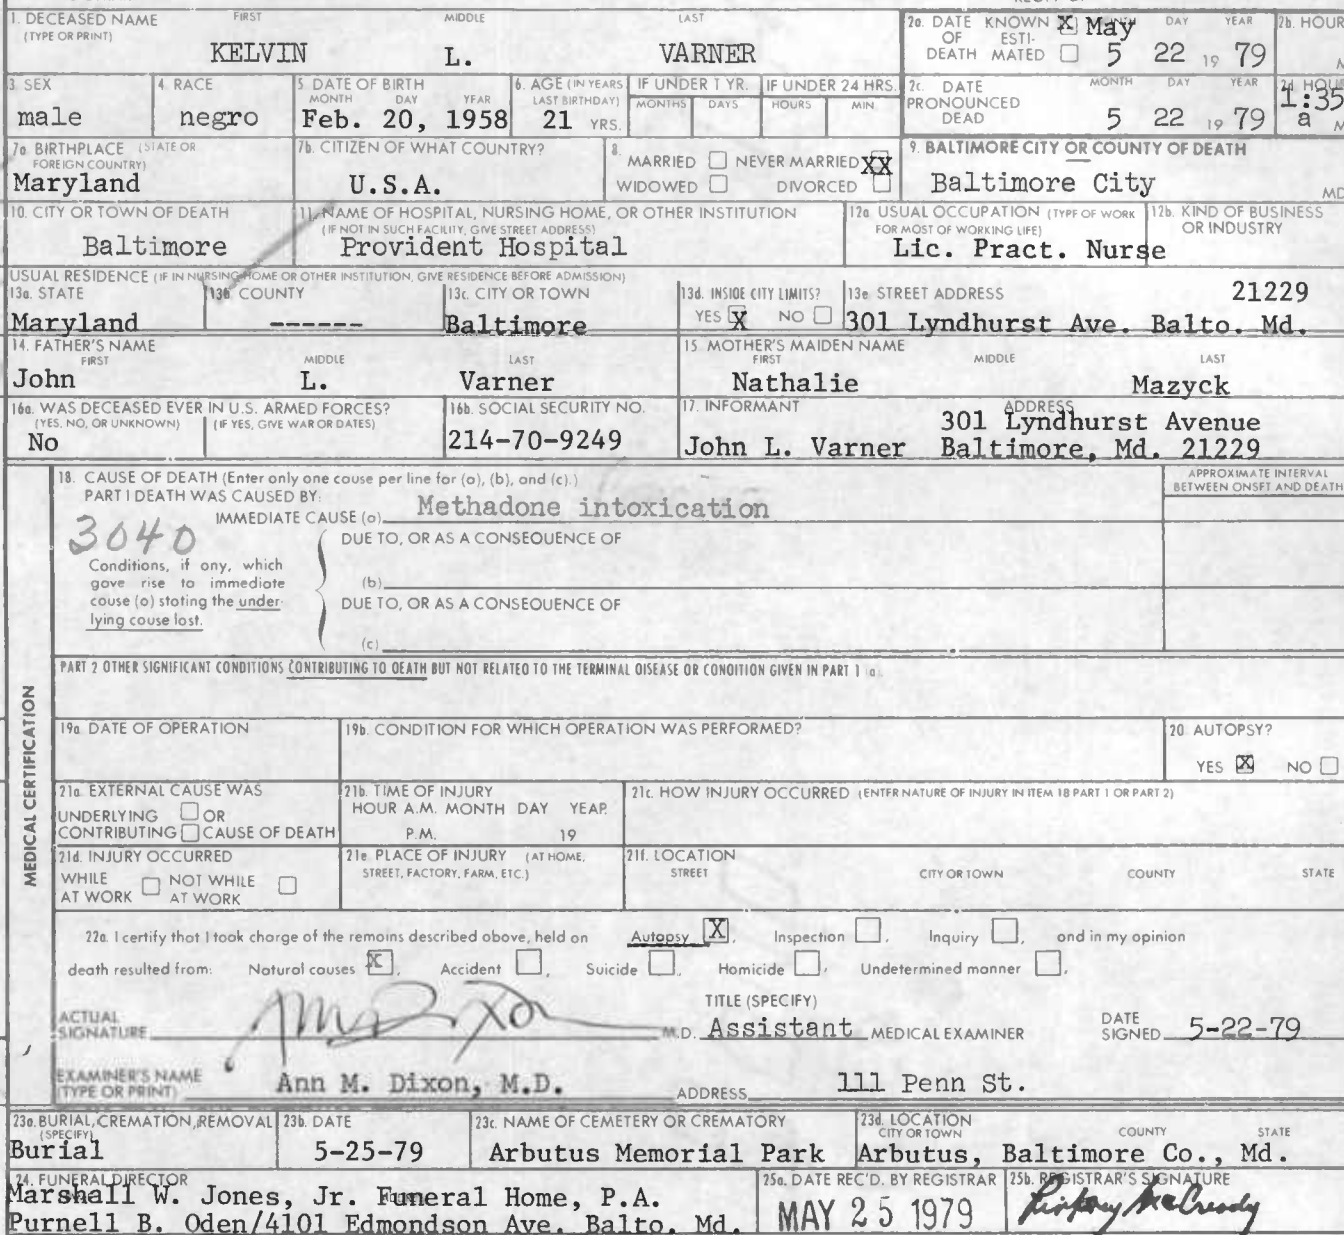 1. DECEASED NAME FIRST MIDDLE LAST
(TYPE OR PRINT)
KELVIN L. VARNER
2a. DATE KNOWN X May DAY YEAR
OF ESTI-
DEATH MATED 5 22 19 79
2b. HOUR
M
3 SEX
male
4. RACE
negro
5. DATE OF BIRTH
MONTH DAY YEAR
Feb. 20, 1958
6. AGE (IN YEARS
LAST BIRTHDAY)
21 YRS.
IF UNDER 1 YR.
MONTHS DAYS
IF UNDER 24 HRS.
HOURS MIN.
2c. DATE MONTH DAY YEAR
PRONOUNCED
DEAD 5 22 19 79
2d HOUR
1:35
a M
7a. BIRTHPLACE (STATE OR
FOREIGN COUNTRY)
Maryland
7b. CITIZEN OF WHAT COUNTRY?
U.S.A.
8. MARRIED NEVER MARRIED XX
WIDOWED DIVORCED
9. BALTIMORE CITY OR COUNTY OF DEATH
Baltimore City MD
10. CITY OR TOWN OF DEATH
Baltimore
11. NAME OF HOSPITAL, NURSING HOME, OR OTHER INSTITUTION
(IF NOT IN SUCH FACILITY, GIVE STREET ADDRESS)
Provident Hospital
12a. USUAL OCCUPATION (TYPE OF WORK
FOR MOST OF WORKING LIFE)
Lic. Pract. Nurse
12b. KIND OF BUSINESS
OR INDUSTRY
USUAL RESIDENCE (IF IN NURSING HOME OR OTHER INSTITUTION, GIVE RESIDENCE BEFORE ADMISSION)
13a. STATE
Maryland
13b. COUNTY
------
13c. CITY OR TOWN
Baltimore
13d. INSIDE CITY LIMITS?
YES X NO
13e STREET ADDRESS 21229
301 Lyndhurst Ave. Balto. Md.
14. FATHER'S NAME
FIRST MIDDLE LAST
John L. Varner
15 MOTHER'S MAIDEN NAME
FIRST MIDDLE LAST
Nathalie Mazyck
16a. WAS DECEASED EVER IN U.S. ARMED FORCES?
(YES, NO, OR UNKNOWN) (IF YES, GIVE WAR OR DATES)
No
16b. SOCIAL SECURITY NO.
214-70-9249
17. INFORMANT ADDRESS
301 Lyndhurst Avenue
John L. Varner Baltimore, Md. 21229
18. CAUSE OF DEATH (Enter only one cause per line for (a), (b), and (c).)
PART I DEATH WAS CAUSED BY:
IMMEDIATE CAUSE (a) Methadone intoxication
APPROXIMATE INTERVAL
BETWEEN ONSET AND DEATH
3040
DUE TO, OR AS A CONSEQUENCE OF
Conditions, if any, which
gave rise to immediate
cause (a) stating the under-
lying cause last.
(b)
DUE TO, OR AS A CONSEQUENCE OF
(c)
PART 2 OTHER SIGNIFICANT CONDITIONS CONTRIBUTING TO DEATH BUT NOT RELATED TO THE TERMINAL DISEASE OR CONDITION GIVEN IN PART 1 (a).
MEDICAL CERTIFICATION
19a. DATE OF OPERATION
19b. CONDITION FOR WHICH OPERATION WAS PERFORMED?
20 AUTOPSY?
YES X NO
21a. EXTERNAL CAUSE WAS
UNDERLYING OR
CONTRIBUTING CAUSE OF DEATH
21b. TIME OF INJURY
HOUR A.M. MONTH DAY YEAR
P.M. 19
21c. HOW INJURY OCCURRED (ENTER NATURE OF INJURY IN ITEM 18 PART 1 OR PART 2)
21d. INJURY OCCURRED
WHILE NOT WHILE
AT WORK AT WORK
21e PLACE OF INJURY (AT HOME,
STREET, FACTORY, FARM, ETC.)
21f. LOCATION
STREET CITY OR TOWN COUNTY STATE
22a. I certify that I took charge of the remains described above, held on Autopsy X, Inspection , Inquiry , and in my opinion
death resulted from: Natural causes X, Accident , Suicide , Homicide , Undetermined manner .
ACTUAL
SIGNATURE Ann M Dixon M.D.
TITLE (SPECIFY)
Assistant MEDICAL EXAMINER
DATE
SIGNED 5-22-79
EXAMINER'S NAME
(TYPE OR PRINT) Ann M. Dixon, M.D. ADDRESS 111 Penn St.
23a. BURIAL, CREMATION, REMOVAL
(SPECIFY)
Burial
23b. DATE
5-25-79
23c. NAME OF CEMETERY OR CREMATORY
Arbutus Memorial Park
23d. LOCATION
CITY OR TOWN COUNTY STATE
Arbutus, Baltimore Co., Md.
24. FUNERAL DIRECTOR
Marshall W. Jones, Jr. Funeral Home, P.A.
Purnell B. Oden/4101 Edmondson Ave. Balto. Md.
25a. DATE REC'D. BY REGISTRAR
MAY 25 1979
25b. REGISTRAR'S SIGNATURE
McCready